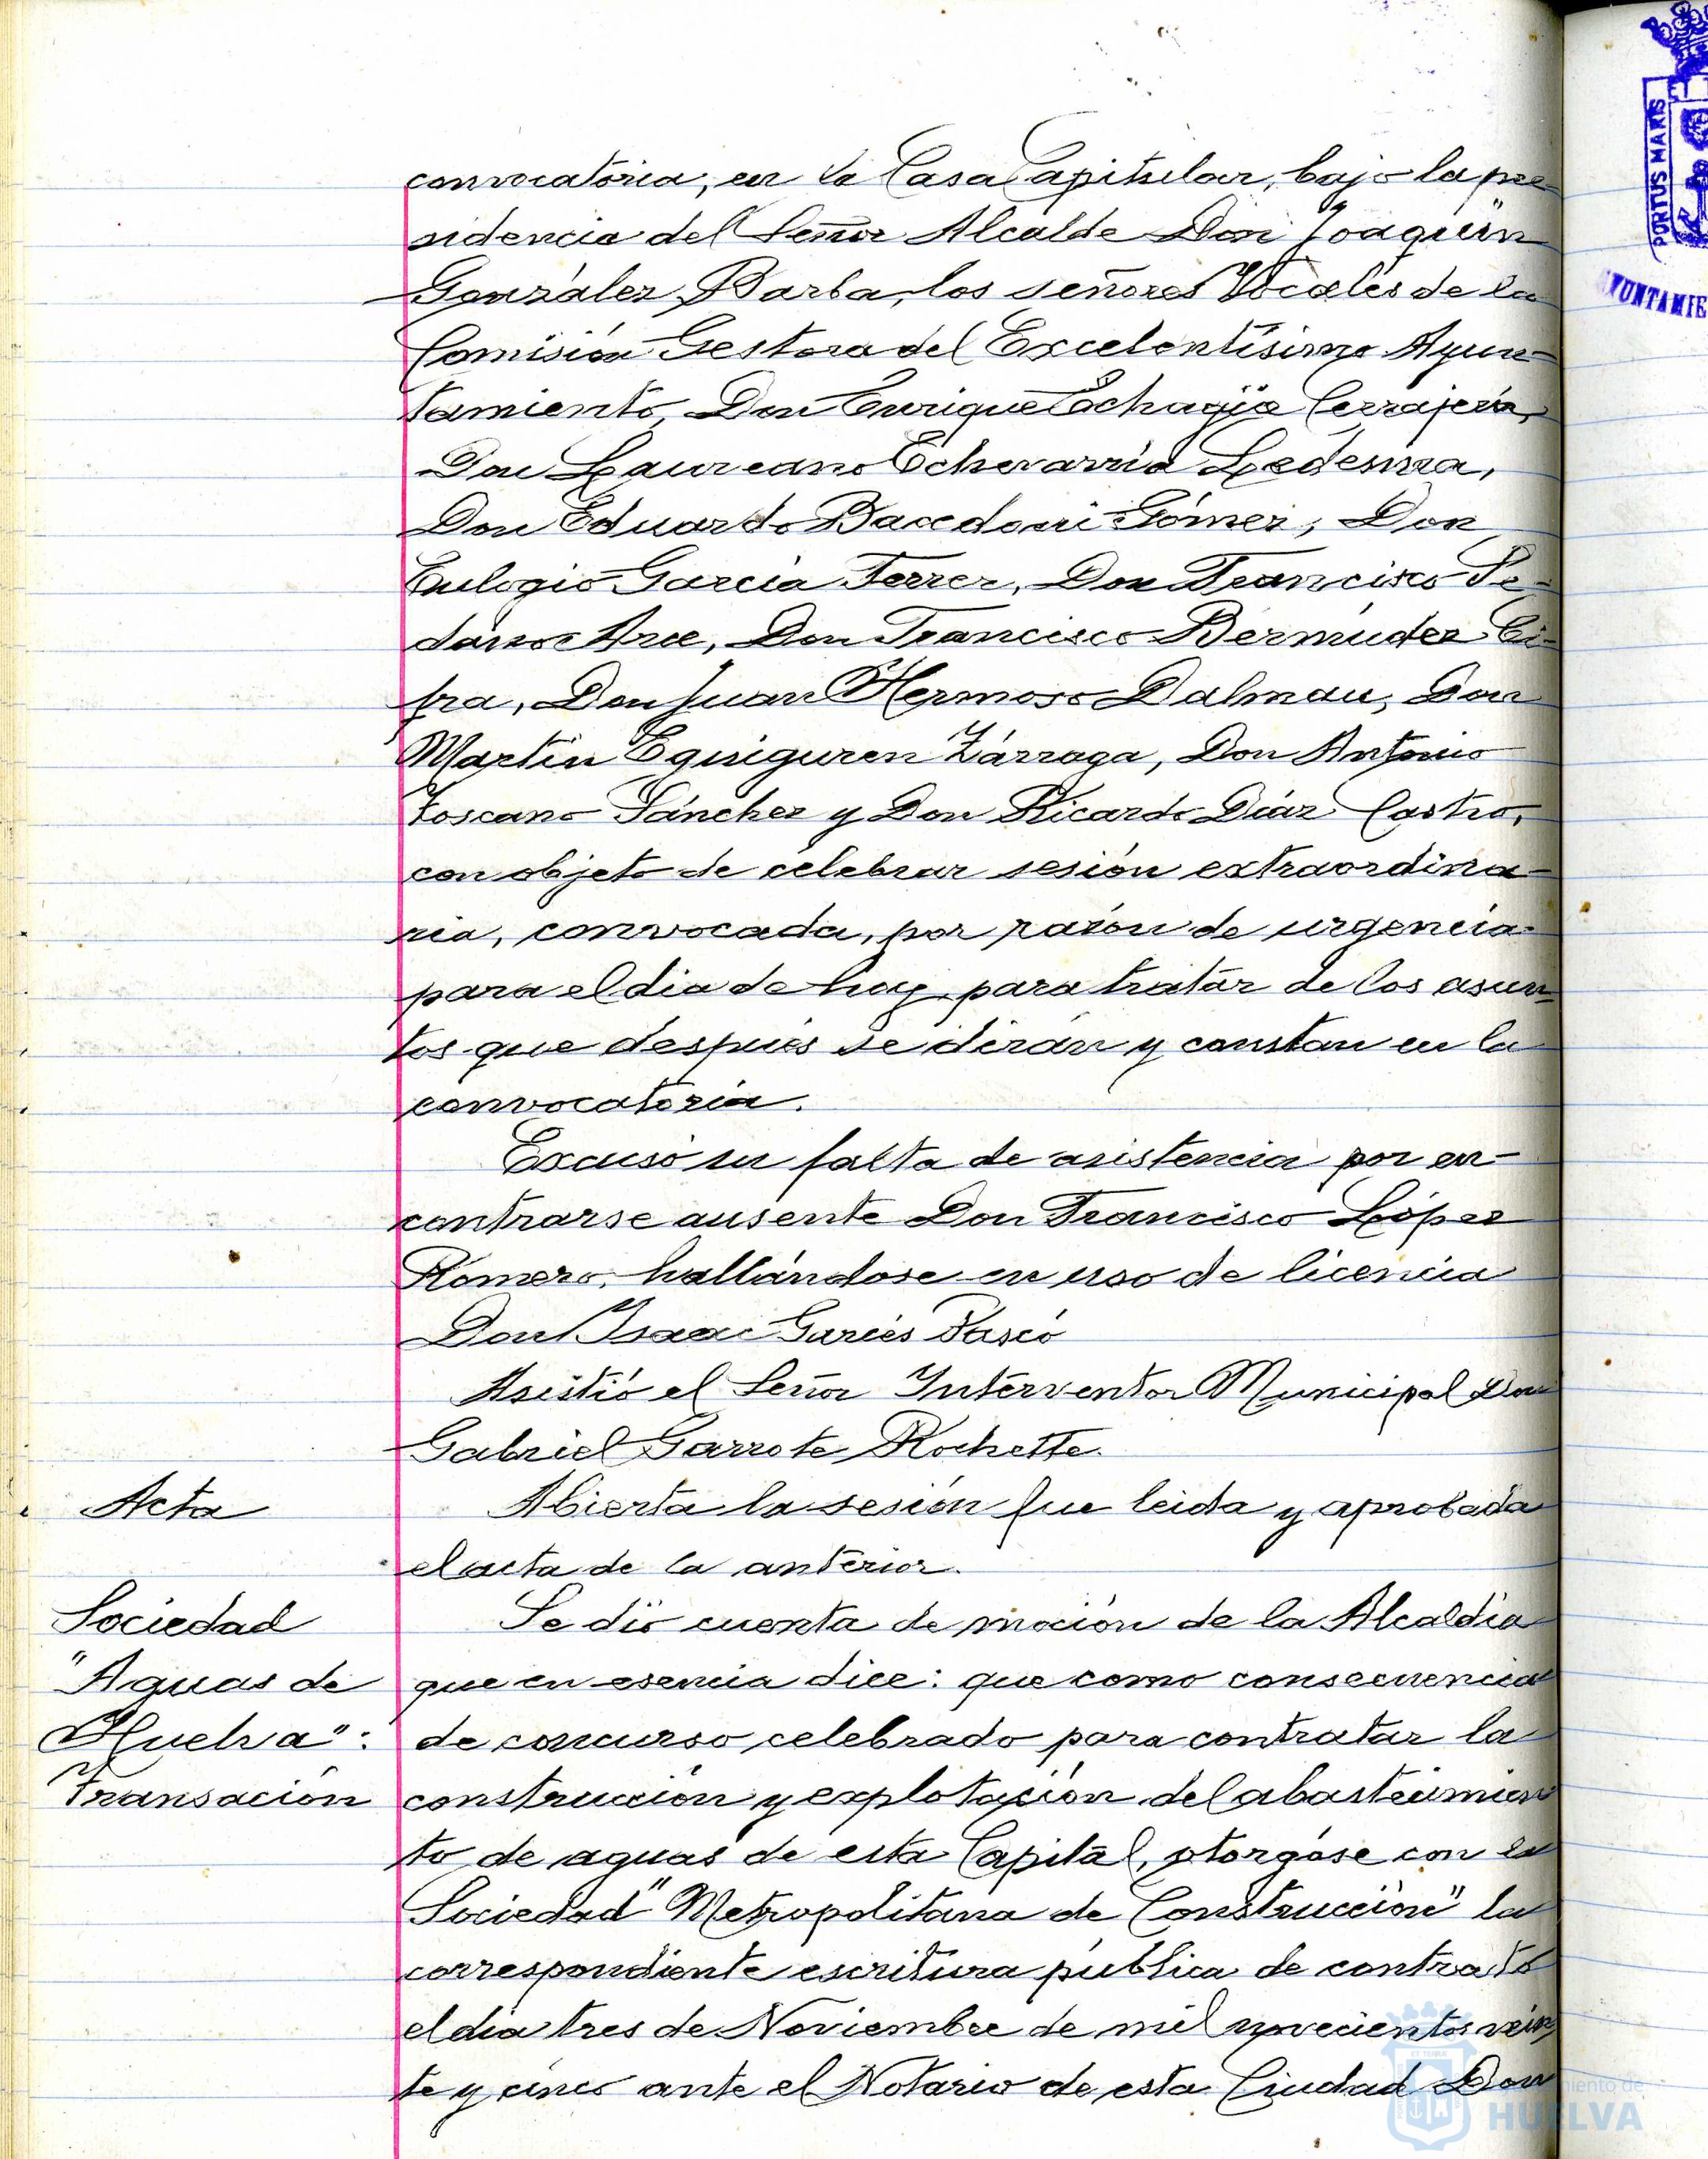 convocatoria, en la Casa Capitular, bajo la pre-
sidencia del Señor Alcalde Don Joaquín
González Barba, los señores Vocales de la
Comisión Gestora del Excelentísimo Ayun-
tamiento, Don Enrique Echagüe Cerrajería,
Don Laureano Echevarría Ledesma,
Don Eduardo Gómez, Don
Eulogio García Ferrer, Don Francisco Pe-
dárros Arce, Don Francisco Bermúdez Ci-
fra, Don Juan Hermoso Dalmau, Don
Martín Eguiguren Zárraga, Don Antonio
Toscano Sánchez y Don Ricardo Díaz Castro,
con objeto de celebrar sesión extraordina-
ria, convocada, por razón de urgencia
para el dia de hoy, para tratar de los asun-
tos que después se dirán y constan en la
convocatoria.
Excusó su falta de asistencia por en-
contrarse ausente Don Francisco López
Romero, hallándose en uso de licencia
Don Isaac Garcés
Asistió el Señor Interventor Municipal Don
Gabriel Garrote Rochette.
Acta
Abierta la sesión fue leida y aprobada
el acta de la anterior.
Sociedad
"Aguas de
Huelva":
Transación
Se dió cuenta de moción de la Alcaldía
que en esencia dice: que como consecuencia
de concurso celebrado para contratar la
construcción y explotación del abastecimien
to de aguas de esta Capital, otorgóse con la
Sociedad "Metropolitana de Construcción" la
correspondiente escritura pública de contrato
el dia tres de Noviembre de mil novecientos vein
te y cinco ante el Notario de esta Ciudad Don
PORTUS MARIS
HUELVA